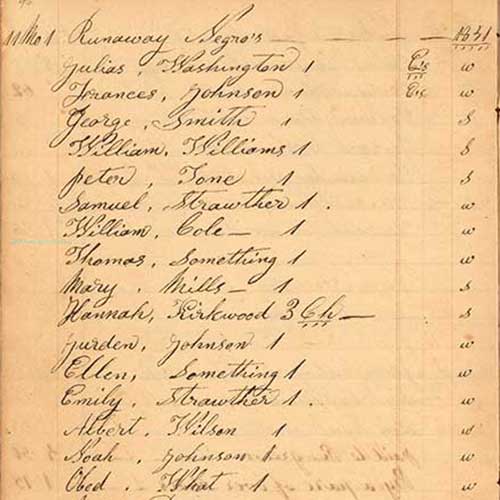 11 Mo 1 Runaway Negro's — 1831
Julias, Washington 1 Cs w
Frances, Johnson 1 Cs w
George, Smith 1 s
William, Williams 1 s
peter, Tone 1 s
Samuel, Strawther 1. w
William, Cole — 1 w
Thomas, Something 1 w
Mary, Mills — 1 s
Hannah, Kirkwood 3 Ch — s
Jurden, Johnson 1 w
Ellen, Something 1 w
Emily, Strawther 1. w
Albert, Wilson 1 w
Noah, Johnson 1 w
Obed. What 1 w